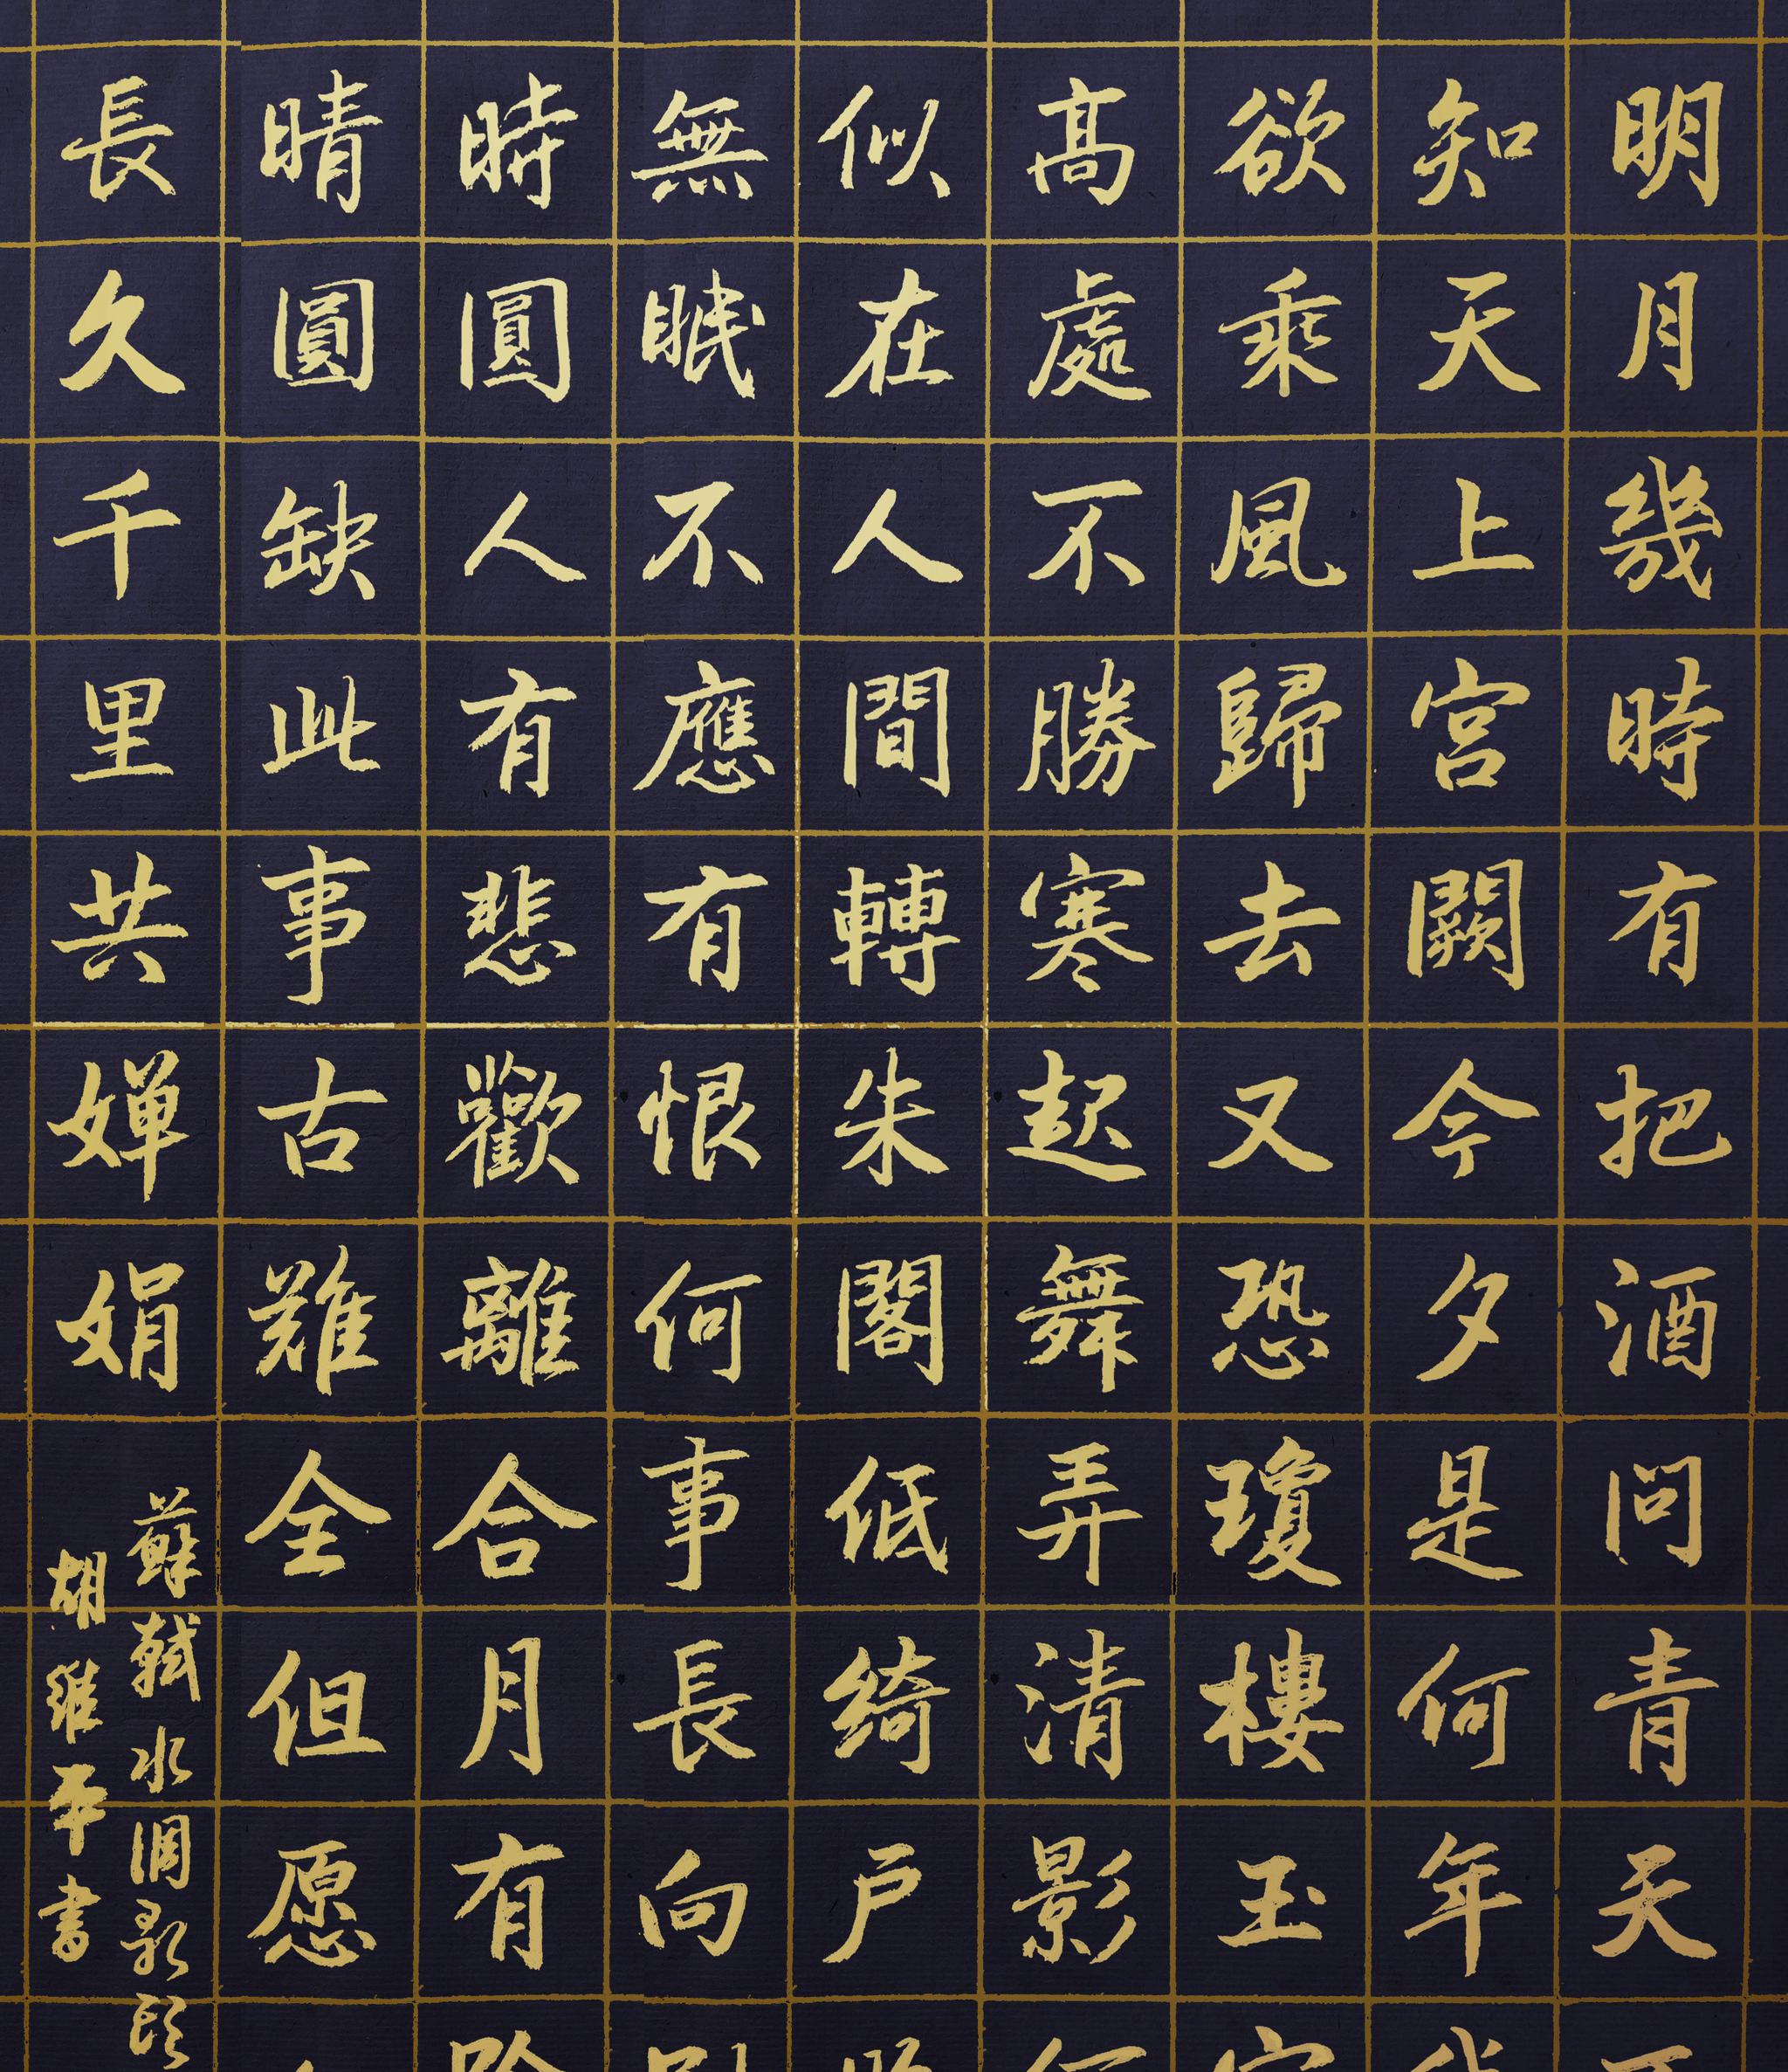 明月幾時有把酒問青天
知天上宮闕今夕是何年
欲乘風歸去又恐瓊樓玉
髙處不勝寒起舞弄清影
似在人間轉朱閣低綺户
無眠不應有恨何事長向
時圓人有悲歡離合月有
晴圓缺此事古難全但愿
長久千里共嬋娟
蘇軾水調歌頭
胡維平書